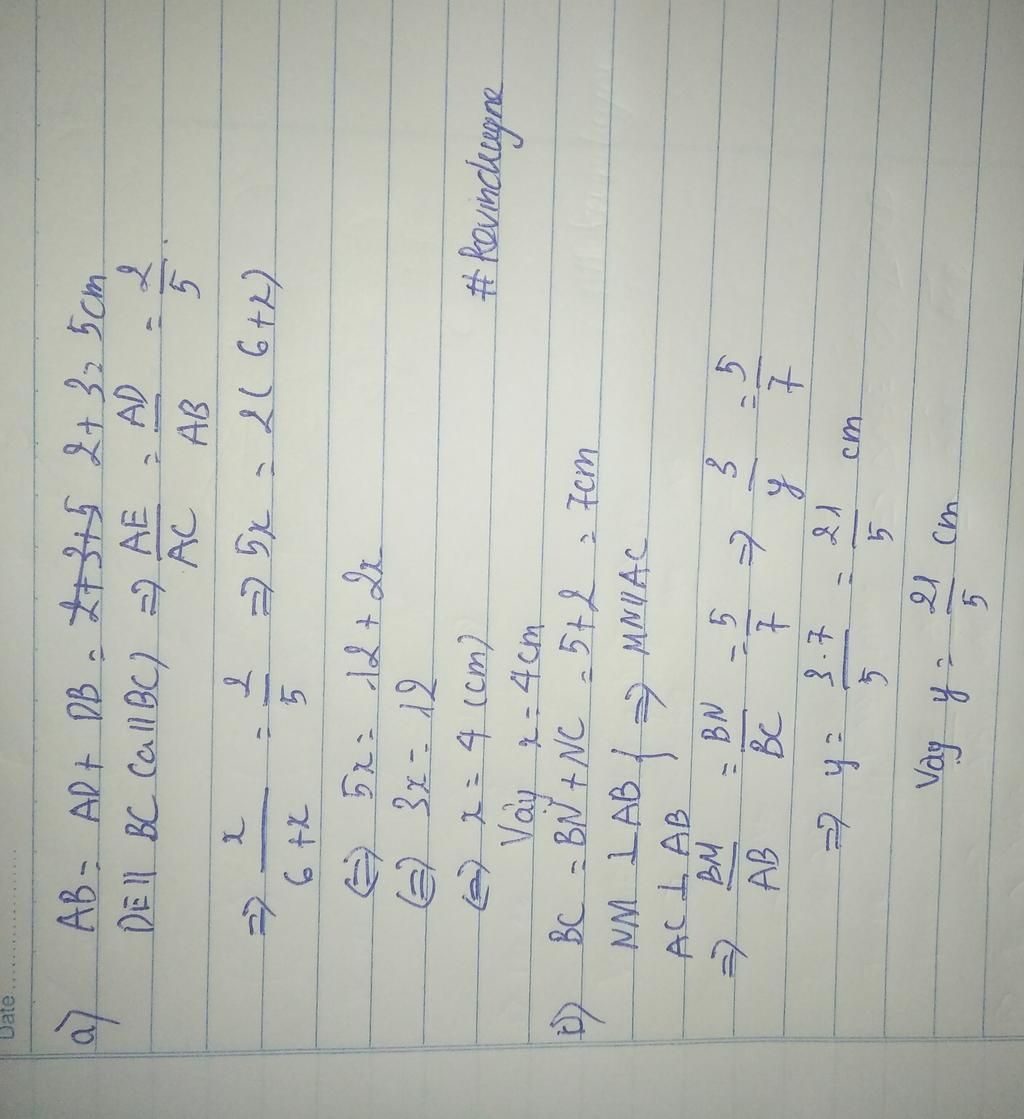 Date
a) AB = AD + DB = 2+3+5 2 + 3 = 5cm
DE // BC (a//BC) => AE/AC = AD/AB = 2/5.
=> x/(6+x) = 2/5 => 5x = 2(6+x)
<=> 5x = 12 + 2x
<=> 3x = 12
<=> x = 4 (cm)
Vậy x = 4cm
#kevinchugne
c) BC = BN + NC = 5+2 = 7cm
NM ⊥ AB
AC ⊥ AB } => MN//AC
=> BM/AB = BN/BC = 5/7 => 3/y = 5/7
=> y = 3.7/5 = 21/5 cm
Vậy y = 21/5 cm